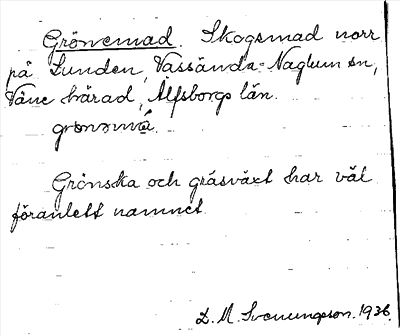 Grönemad. Skogsmad norr
på Lunden, Vassända-Naglum sn,
Väne härad, Älfsborgs län.
Grönska och gräsväxt har väl
föranlett namnet.
D. M. Svenungsson. 1936.